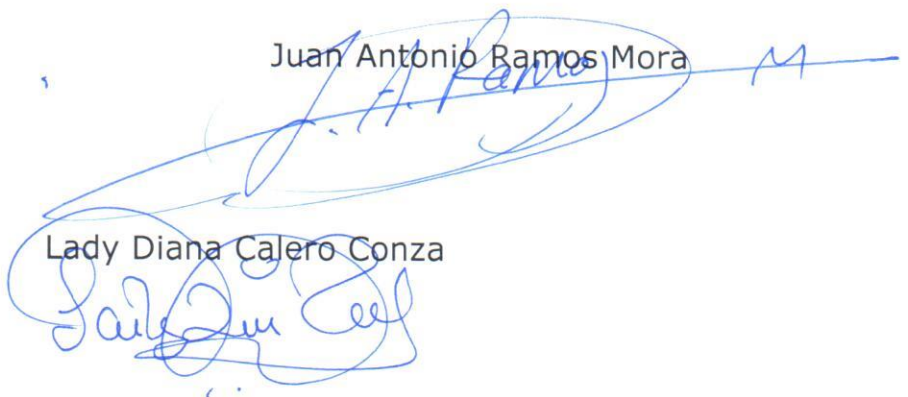 Juan Antonio Ramos Mora
J. A. Ramos M
Lady Diana Calero Conza